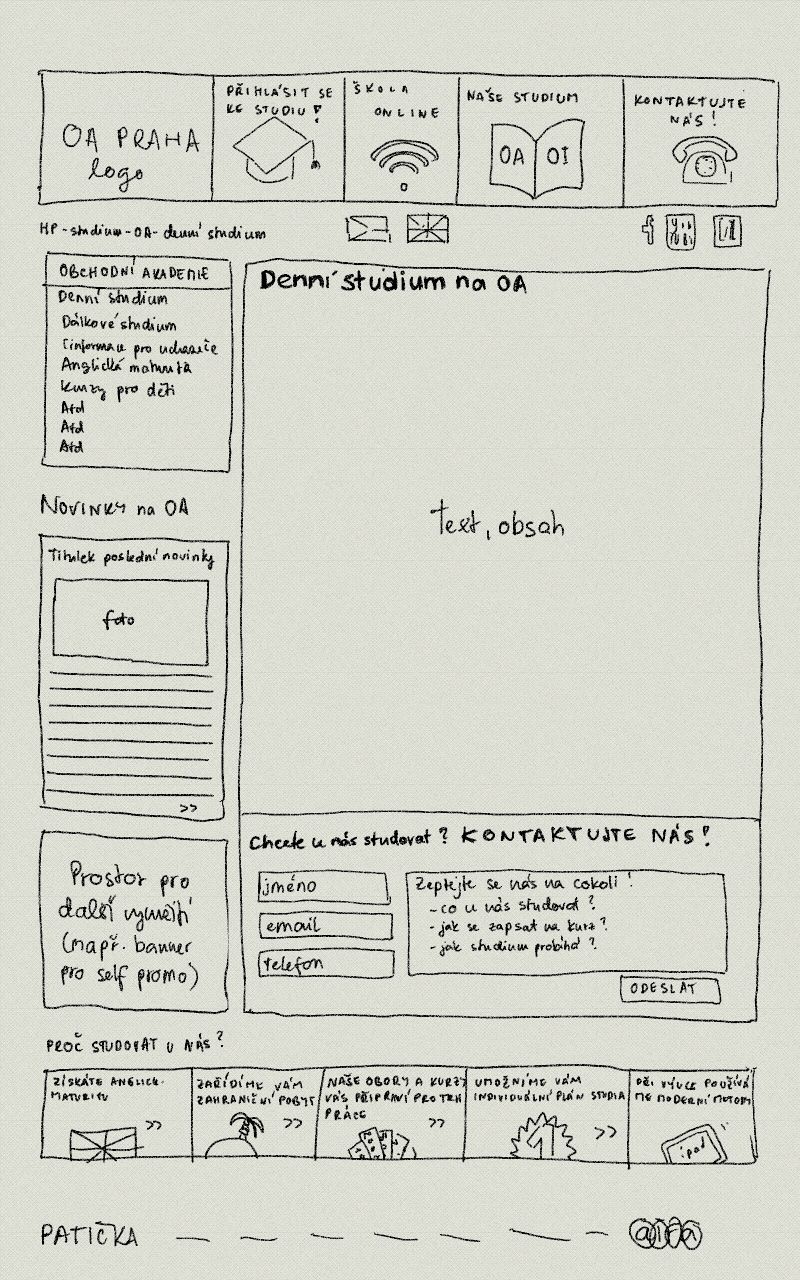 OA PRAHA
logo
PŘIHLÁSIT SE
KE STUDIU!
ŠKOLA
ONLINE
NAŠE STUDIUM
OA OI
KONTAKTUJTE
NÁS!
HP - studium - OA - denní studium
f
OBCHODNÍ AKADEMIE
Denní studium
Dálkové studium
Informace pro uchazeče
Anglická maturita
Kurzy pro děti
Atd
Atd
Atd
Denní studium na OA
Text, obsah
NOVINKY na OA
Titulek poslední novinky
foto
>>
Prostor pro
další využití
(např. banner
pro self promo)
Chcete u nás studovat? KONTAKTUJTE NÁS!
jméno
email
telefon
Zeptejte se nás na cokoli!
- co u nás studovat?
- jak se zapsat na kurz?
- jak studium probíhá?
ODESLAT
PROČ STUDOVAT U NÁS?
ZÍSKÁTE ANGLICK.
MATURITU
>>
ZAŘÍDÍME VÁM
ZAHRANIČNÍ POBYT
>>
NAŠE OBORY A KURZY
VÁS PŘIPRAVÍ PRO TRH
PRÁCE
>>
UMOŽNÍME VÁM
INDIVIDUÁLNÍ PLÁN STUDIA
1
>>
PŘI VÝUCE POUŽÍVÁ
ME MODERNÍ METODY
ipad
PATIČKA